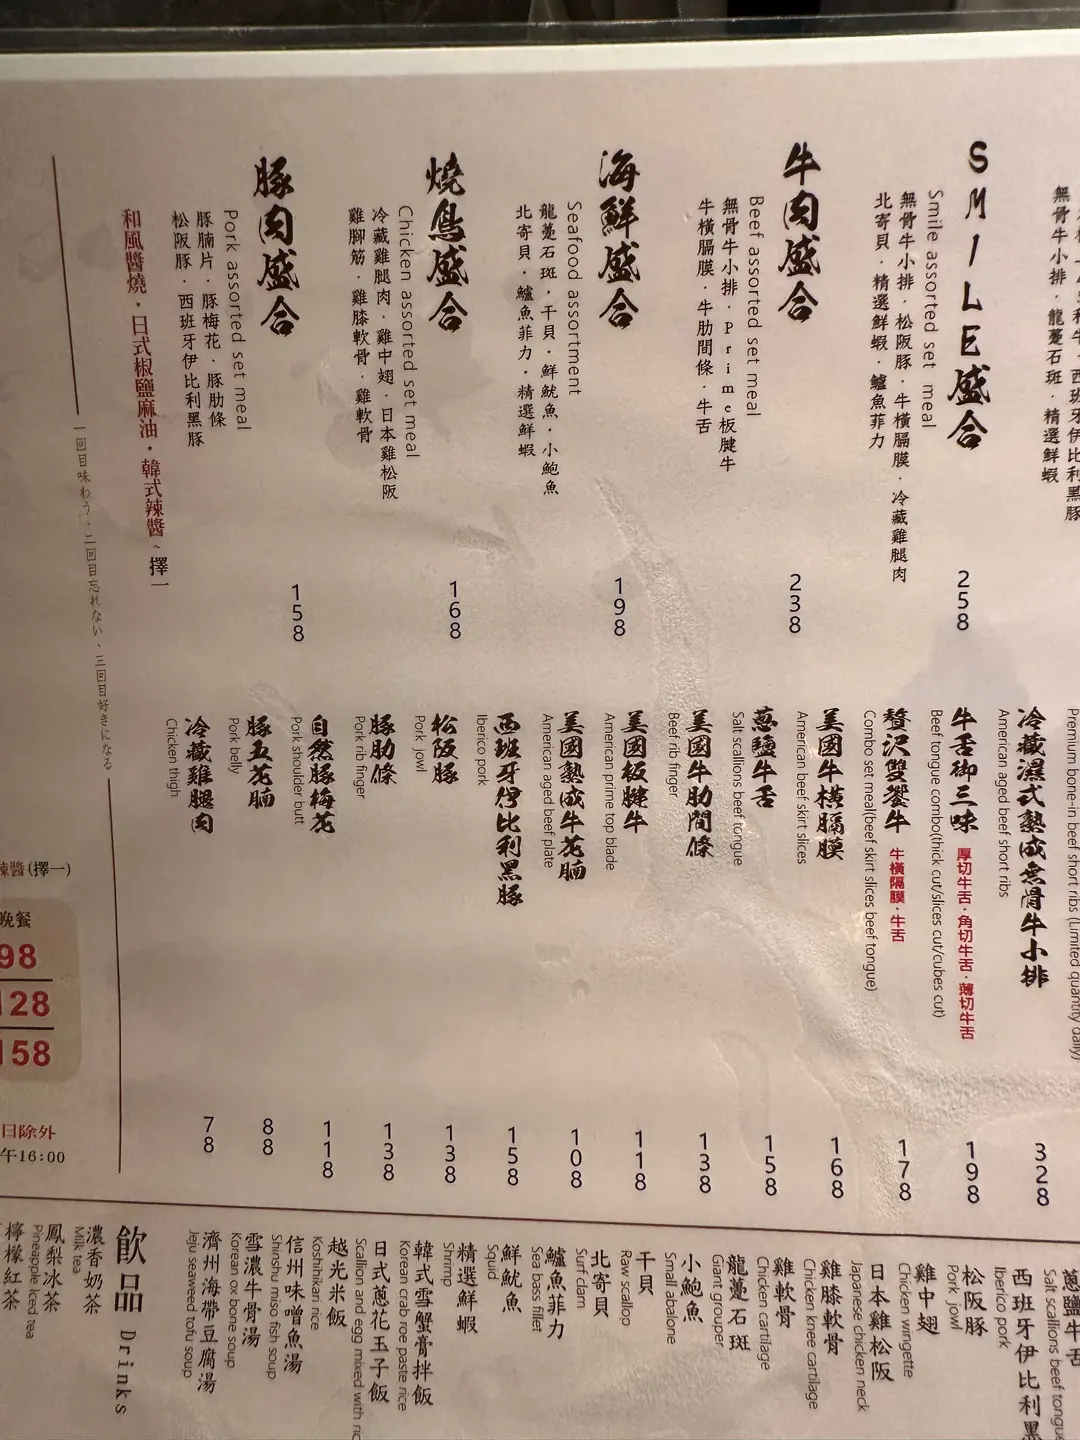 無骨牛小排．龍躉石斑．精選鮮蝦
SMILE盛合
Smile assorted set meal
無骨牛小排．松阪豚．牛橫膈膜．冷藏雞腿肉
北寄貝．精選鮮蝦．鱸魚菲力
258
牛肉盛合
Beef assorted set meal
無骨牛小排．Prime板腱牛
牛橫膈膜．牛肋間條．牛舌
238
海鮮盛合
Seafood assortment
龍躉石斑．干貝．鮮魷魚．小鮑魚
北寄貝．鱸魚菲力．精選鮮蝦
198
燒鳥盛合
Chicken assorted set meal
冷藏雞腿肉．雞中翅．日本雞松阪
雞腳筋．雞膝軟骨．雞軟骨
168
豚肉盛合
Pork assorted set meal
豚腩片．豚梅花．豚肋條
松阪豚．西班牙伊比利黑豚
158
和風醬燒．日式椒鹽麻油．韓式辣醬~擇一
一回目味わう、二回目忘れない、三回目好きになる
Premium bone-in beef short ribs (Limited quantity daily)
冷藏濕式熟成無骨牛小排
American aged beef short ribs
328
牛舌御三味 厚切牛舌．角切牛舌．薄切牛舌
Beef tongue combo(thick cut/slices cut/cubes cut)
198
贅沢雙饗牛 牛橫隔膜．牛舌
Combo set meal(beef skirt slices beef tongue)
178
美國牛橫膈膜
American beef skirt slices
168
蔥鹽牛舌
Salt scallions beef tongue
158
美國牛肋間條
Beef rib finger
138
美國板腱牛
American prime top blade
118
美國熟成牛花腩
American aged beef plate
108
西班牙伊比利黑豚
Iberico pork
158
松阪豚
Pork jowl
138
豚肋條
Pork rib finger
138
自然豚梅花
Pork shoulder butt
118
豚五花腩
Pork belly
88
冷藏雞腿肉
Chicken thigh
78
辣醬(擇一)
晚餐
98
128
158
日除外
午16:00
蔥鹽牛舌
Salt scallions beef tongue
西班牙伊比利黑
Iberico pork
松阪豚
Pork jowl
雞中翅
Chicken wingette
日本雞松阪
Japanese chicken neck
雞膝軟骨
Chicken knee cartilage
雞軟骨
Chicken cartilage
龍躉石斑
Giant grouper
小鮑魚
Small abalone
干貝
Raw scallop
北寄貝
Surf clam
鱸魚菲力
Sea bass fillet
鮮魷魚
Squid
精選鮮蝦
Shrimp
韓式雪蟹膏拌飯
Korean crab roe paste rice
日式蔥花玉子飯
Scallion and egg mixed with ric
越光米飯
Koshihikari rice
信州味噌魚湯
Shinshu miso fish soup
雪濃牛骨湯
Korean ox bone soup
濟州海帶豆腐湯
Jeju seaweed tofu soup
飲品 Drinks
濃香奶茶
Milk tea
鳳梨冰茶
Pineapple iced tea
檸檬紅茶